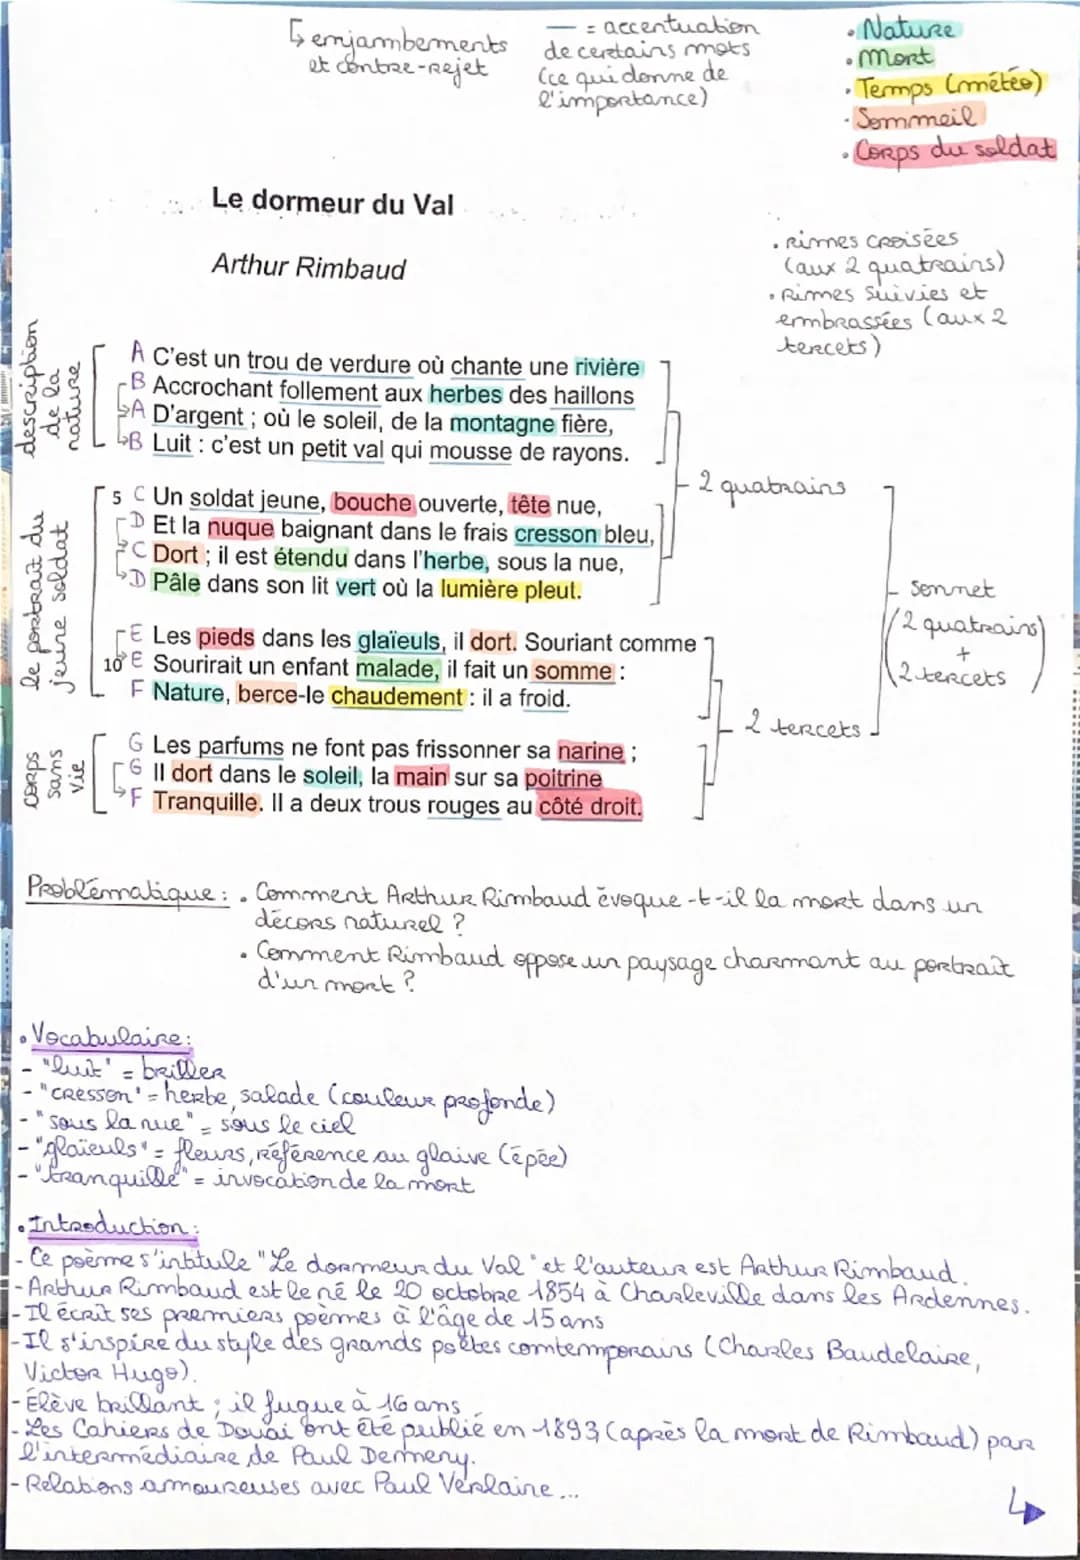 ↳ enjambements
et contre-rejet
— = accentuation
de certains mots
(ce qui donne de
l'importance)
• Nature
• Mort
• Temps (météo)
• Sommeil
• Corps du soldat
Le dormeur du Val
Arthur Rimbaud
• rimes croisées
(aux 2 quatrains)
• Rimes suivies et
embrassées (aux 2
tercets)
description
de la
nature
A C'est un trou de verdure où chante une rivière
B Accrochant follement aux herbes des haillons
A D'argent ; où le soleil, de la montagne fière,
B Luit : c'est un petit val qui mousse de rayons.
2 quatrains
le portrait du
jeune soldat
5 C Un soldat jeune, bouche ouverte, tête nue,
D Et la nuque baignant dans le frais cresson bleu,
C Dort ; il est étendu dans l'herbe, sous la nue,
D Pâle dans son lit vert où la lumière pleut.
sonnet
(2 quatrains
+
2 tercets)
E Les pieds dans les glaïeuls, il dort. Souriant comme
10 E Sourirait un enfant malade, il fait un somme :
F Nature, berce-le chaudement : il a froid.
2 tercets
corps
sans
vie
G Les parfums ne font pas frissonner sa narine ;
G Il dort dans le soleil, la main sur sa poitrine
F Tranquille. Il a deux trous rouges au côté droit.
Problématique : • Comment Arthur Rimbaud évoque-t-il la mort dans un
décors naturel ?
• Comment Rimbaud oppose un paysage charmant au portrait
d'un mort ?
• Vocabulaire :
- "luit" = briller
- "cresson" = herbe, salade (couleur profonde)
- "sous la nue" = sous le ciel
- "glaïeuls" = fleurs, référence au glaive (épée)
- "tranquille" = invocation de la mort
• Introduction :
- Ce poème s'intitule "Le dormeur du Val" et l'auteur est Arthur Rimbaud.
- Arthur Rimbaud est le né le 20 octobre 1854 à Charleville dans les Ardennes.
- Il écrit ses premiers poèmes à l'âge de 15 ans
- Il s'inspire du style des grands poètes comtemporains (Charles Baudelaire,
Victor Hugo).
- Élève brillant ; il fugue à 16 ans
- Les Cahiers de Douai ont été publié en 1893 (après la mort de Rimbaud) par
l'intermédiaire de Paul Demeny.
- Relations amoureuses avec Paul Verlaine...